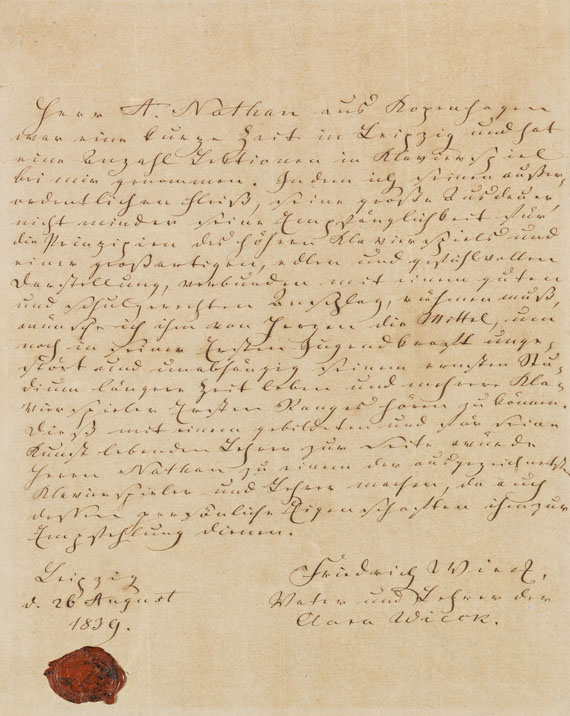 Herr A. Nathan aus Kopenhagen
war eine kurze Zeit in Leipzig und hat
eine Anzahl Lektionen in Klavierspiel
bei mir genommen. Indem ich seinen außer-
ordentlichen Fleiß, seine große Ausdauer,
nicht minder seine Empfänglichkeit für
die Prinzipien des höhern Klavierspiels und
einer großartigen, edlen und gefühlvollen
Darstellung, verbunden mit einem guten
und schulgerechten Anschlag, rühmen muß,
wünsche ich ihm von Herzen die Mittel, um
noch in seiner Ersten Jugendkraft unge-
stört und unabhängig seinem ernsten Stu-
dium längere Zeit leben und mehrere Kla-
vierspieler Ersten Ranges hören zu können.
Dieß mit einem gebildeten und für seine
Kunst lebenden Lehrer zur Seite würde
Herrn Nathan zu einem der ausgezeichnetst.
Klavierspieler und Lehrer machen, da auch
dessen persönliche Eigenschaften ihm zur
Empfehlung dienen.
Leipzig
d. 26 August
1839.
Friedrich Wieck,
Vater und Lehrer der
Clara Wieck.